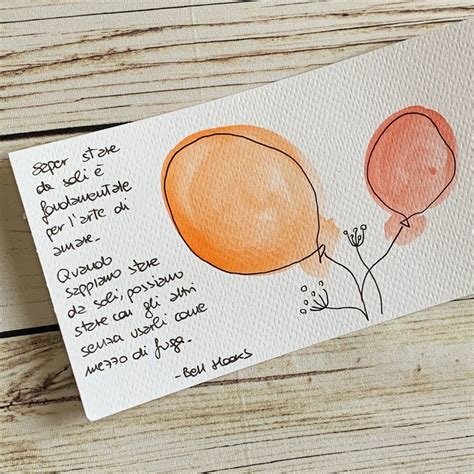 Saper stare
da soli è
fondamentale
per l'arte di
amare.
Quando
sappiamo stare
da soli, possiamo
stare con gli altri
senza usarli come
mezzo di fuga.
- Bell Hooks